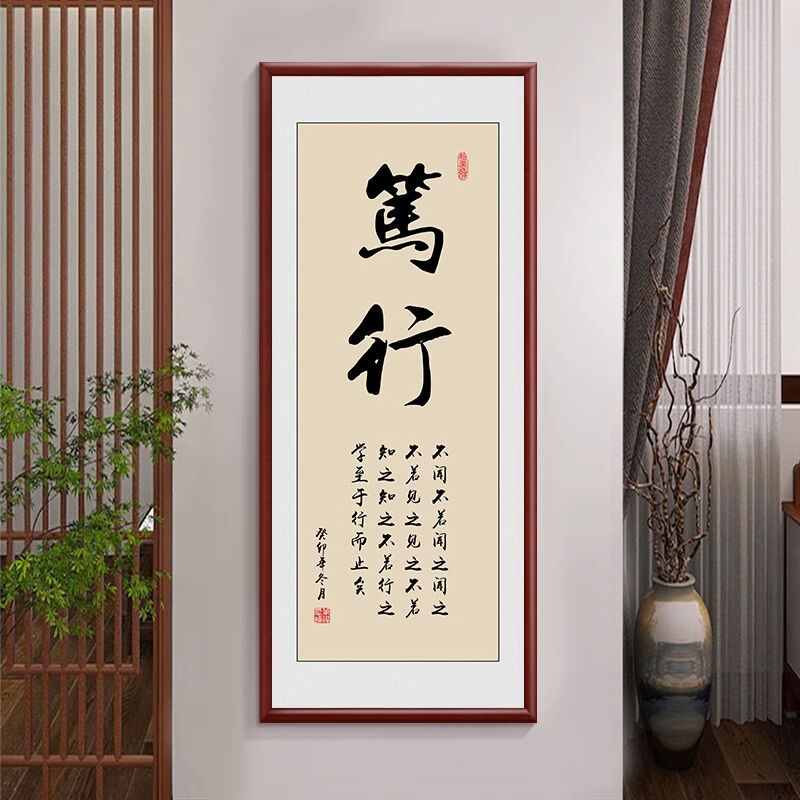 篤行
不闻不若闻之闻之
不若见之见之不若
知之知之不若行之
学至于行而止矣
癸卯年冬月